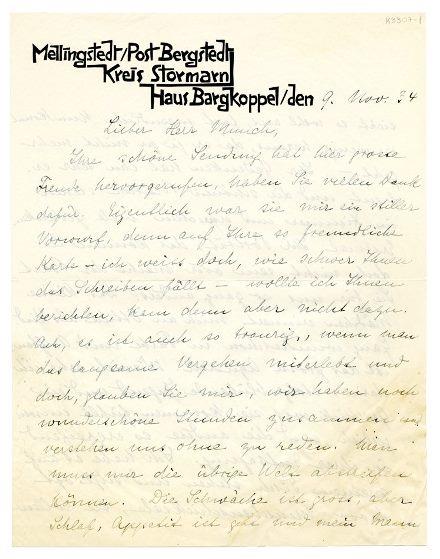 K3307-1
Mellingstedt/Post Bergstedt
Kreis Stormarn
Haus Bargkoppel/den 9. Nov. 34
Lieber Herr Munch,
Ihre schöne Sendung hat hier grosse
Freude hervorgerufen, haben Sie vielen Dank
dafür. Eigentlich war sie mir ein stiller
Vorwurf, denn auf Ihre so freundliche
Karte – ich weiss doch, wie schwer Ihnen
das Schreiben fällt – wollte ich Ihnen
berichten, kam denn aber nicht dazu.
Ach, es ist auch so traurig, wenn man
das langsame Vergehen miterlebt und
doch, glauben Sie mir, wir haben noch
wunderschöne Stunden zusammen und
verstehen uns ohne zu reden. Man
muss nur die übrige Welt abstreifen
können. Die Schwäche ist gross, aber
Schlaf, Appetit ist gut und mein Mann